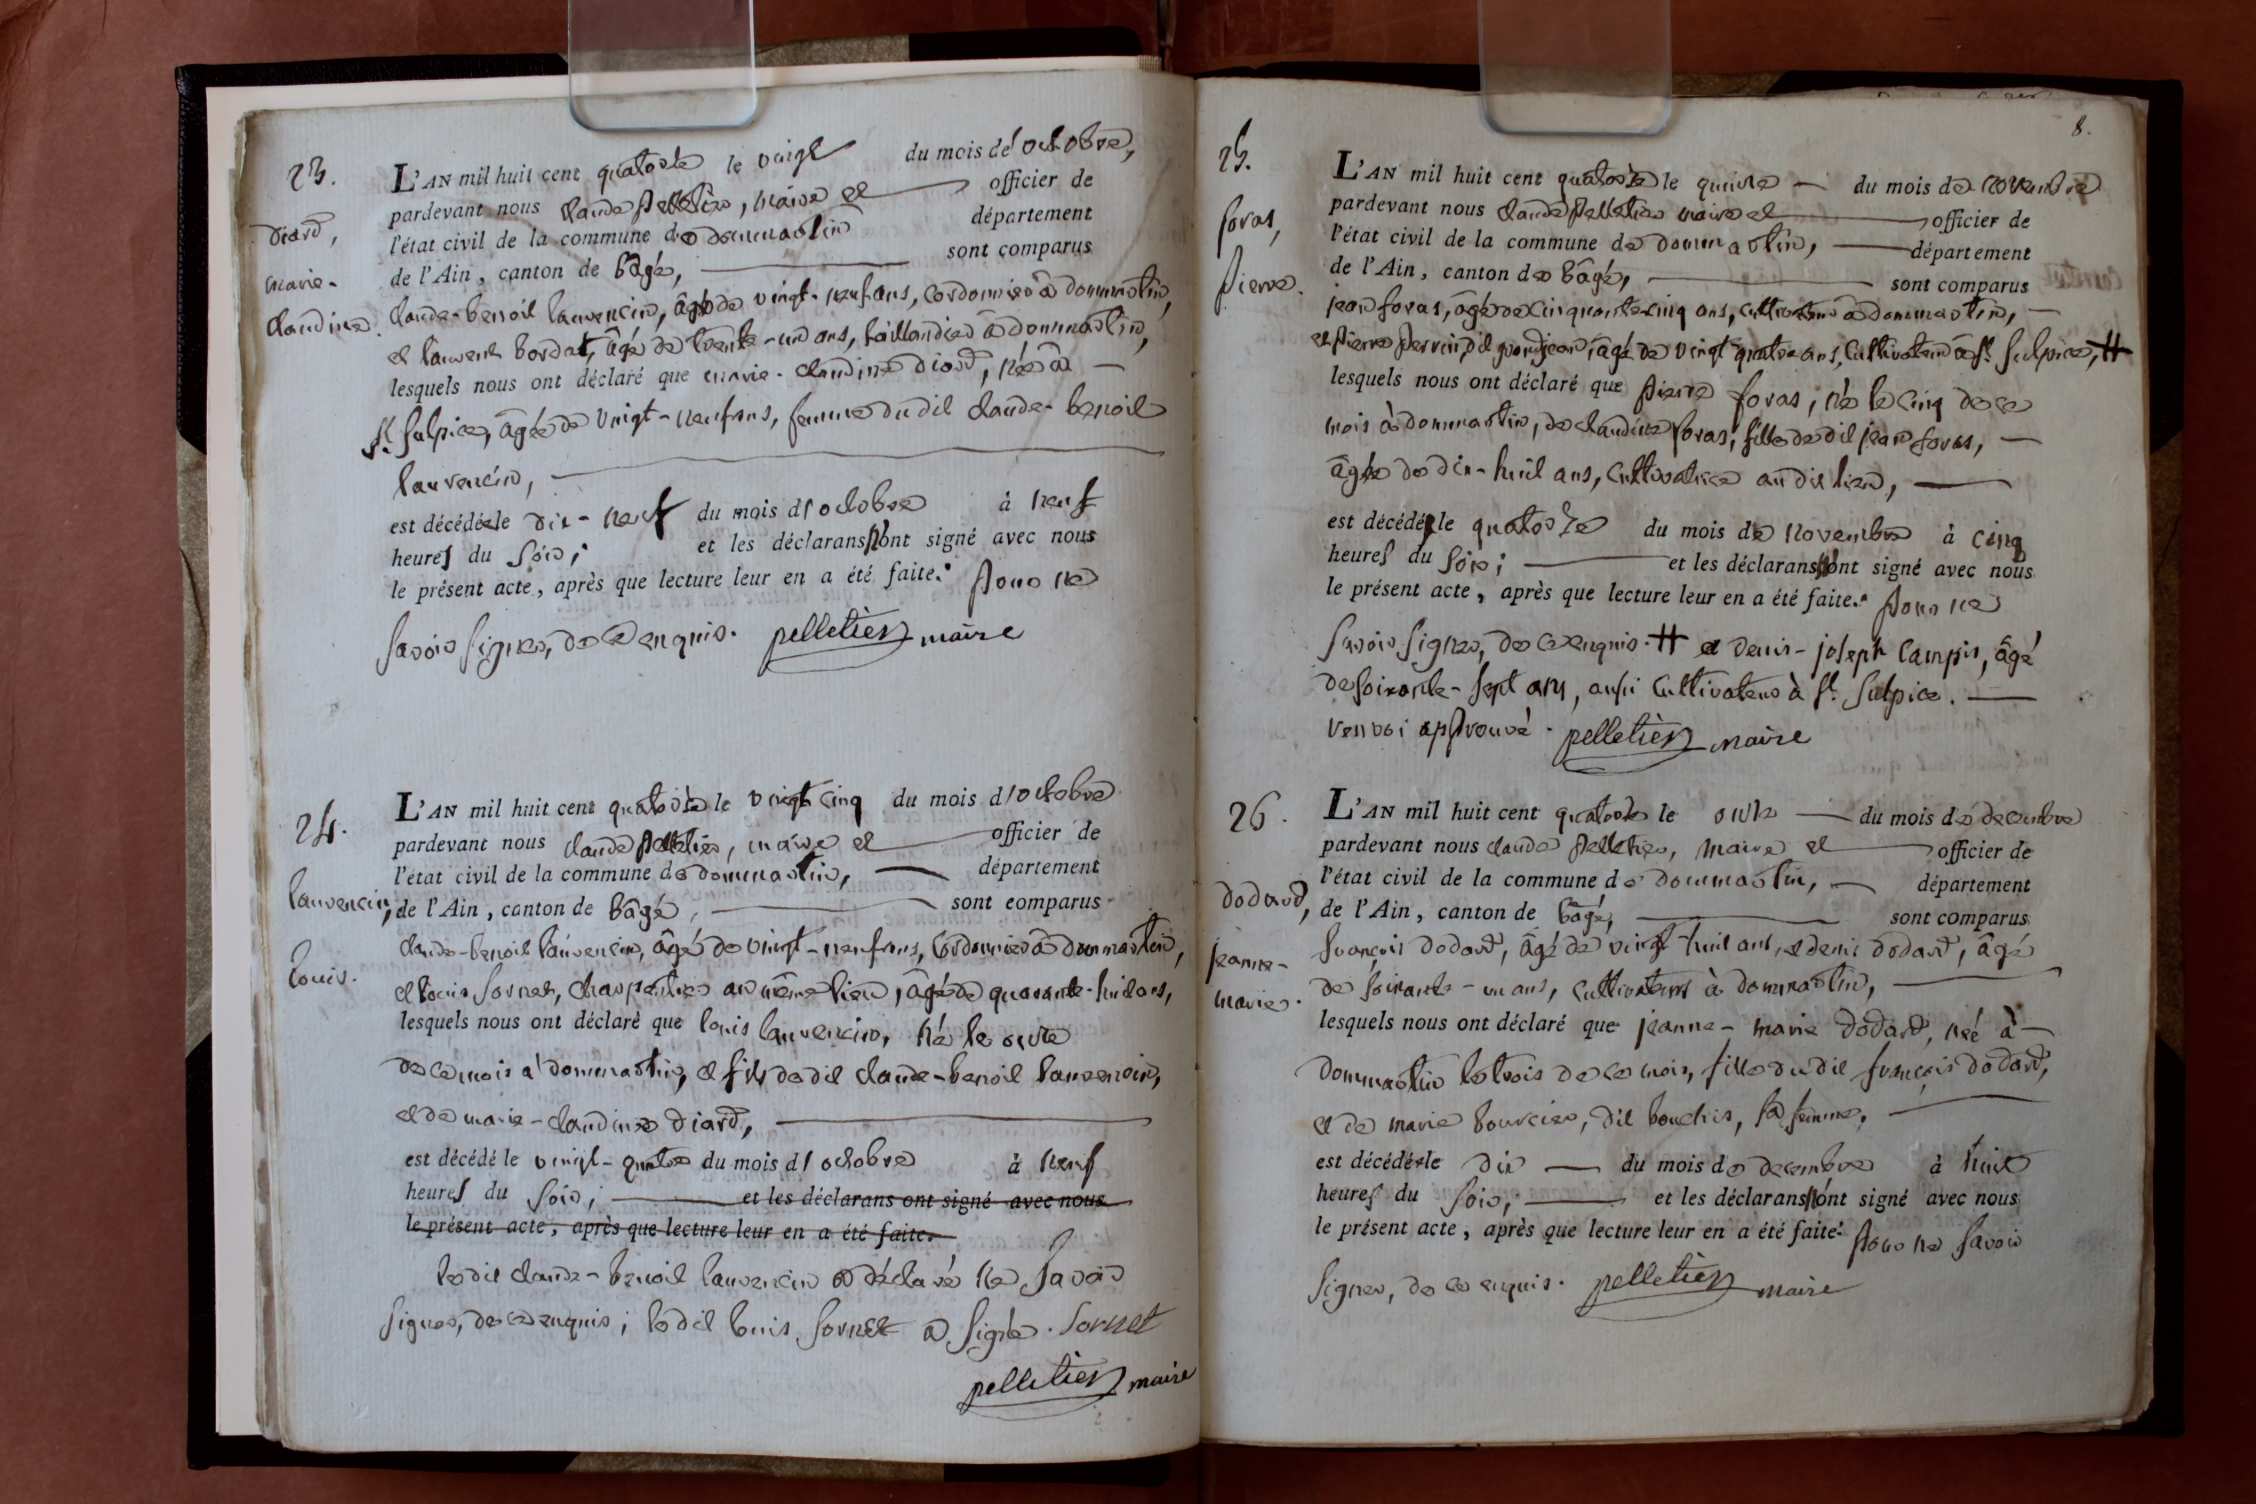 23.
diard,
marie-
claudine.
L'AN mil huit cent quatorze le vingt du mois d'octobre,
pardevant nous claude pelletier, maire et officier de
l'état civil de la commune de dommartin département
de l'Ain, canton de bâgé, sont comparus
claude-benoit lauvencin, âgé de vingt-neuf ans, cordonnier à dommartin,
et laurent bordat, âgé de trente-un ans, taillandier à dommartin,
lesquels nous ont déclaré que marie-claudine diard, née à
st. sulpice, âgée de vingt-neuf ans, femme dudit claude-benoit
lauvencin,
est décédée le dix-neuf du mois d'octobre à neuf
heures du soir; et les déclarans n'ont signé avec nous
le présent acte, après que lecture leur en a été faite. pour ne
savoir signer, de ce enquis. pelletier maire
24.
lauvencin,
louis.
L'AN mil huit cent quatorze le vingt cinq du mois d'octobre
pardevant nous claude pelletier, maire et officier de
l'état civil de la commune de dommartin, département
de l'Ain, canton de bâgé, sont comparus
claude-benoit lauvencin, âgé de vingt-neuf ans, cordonnier à dommartin,
et louis sornet, charpentier au même lieu, âgé de quarante-huit ans,
lesquels nous ont déclaré que louis lauvencin, né le onze
de ce mois à dommartin, et fils dedit claude-benoit lauvencin,
et de marie-claudine diard,
est décédé le vingt-quatre du mois d'octobre à neuf
heures du soir; et les déclarans ont signé avec nous
le présent acte, après que lecture leur en a été faite.
ledit claude-benoit lauvencin a déclaré ne savoir
signer, de ce enquis; ledit louis sornet a signé. Sornet
pelletier maire
8.
25.
foras,
pierre.
L'AN mil huit cent quatorze le quinze du mois de novembre
pardevant nous claude pelletier maire et officier de
l'état civil de la commune de dommartin, département
de l'Ain, canton de bâgé, sont comparus
jean foras, âgé de cinquante-cinq ans, cultivateur à dommartin,
et pierre perrin, dit grandjean, âgé de vingt quatre ans, cultivateur à st. sulpice, #
lesquels nous ont déclaré que pierre foras, né le cinq de ce
mois à dommartin, de claudine foras, fille dedit jean foras,
âgée de dix-huit ans, cultivatrice audit lieu,
est décédé le quatorze du mois de novembre à cinq
heures du soir; et les déclarans n'ont signé avec nous
le présent acte, après que lecture leur en a été faite. pour ne
savoir signer, de ce enquis. # et denis-joseph campis, âgé
de soixante-sept ans, aussi cultivateur à st. sulpice.
renvoi approuvé. pelletier maire
26.
dodard,
jeanne-
marie.
L'AN mil huit cent quatorze le onze du mois de decembre
pardevant nous claude pelletier, maire et officier de
l'état civil de la commune de dommartin, département
de l'Ain, canton de bâgé, sont comparus
françois dodard, âgé de vingt-huit ans, et denis dodard, âgé
de soixante-un ans, cultivateurs à dommartin,
lesquels nous ont déclaré que jeanne-marie dodard, née à
dommartin le trois de ce mois, fille dudit françois dodard,
et de marie bourcier, dit bouchis, sa femme,
est décédée le dix du mois de decembre à huit
heures du soir; et les déclarans n'ont signé avec nous
le présent acte, après que lecture leur en a été faite. pour ne savoir
signer, de ce enquis. pelletier maire